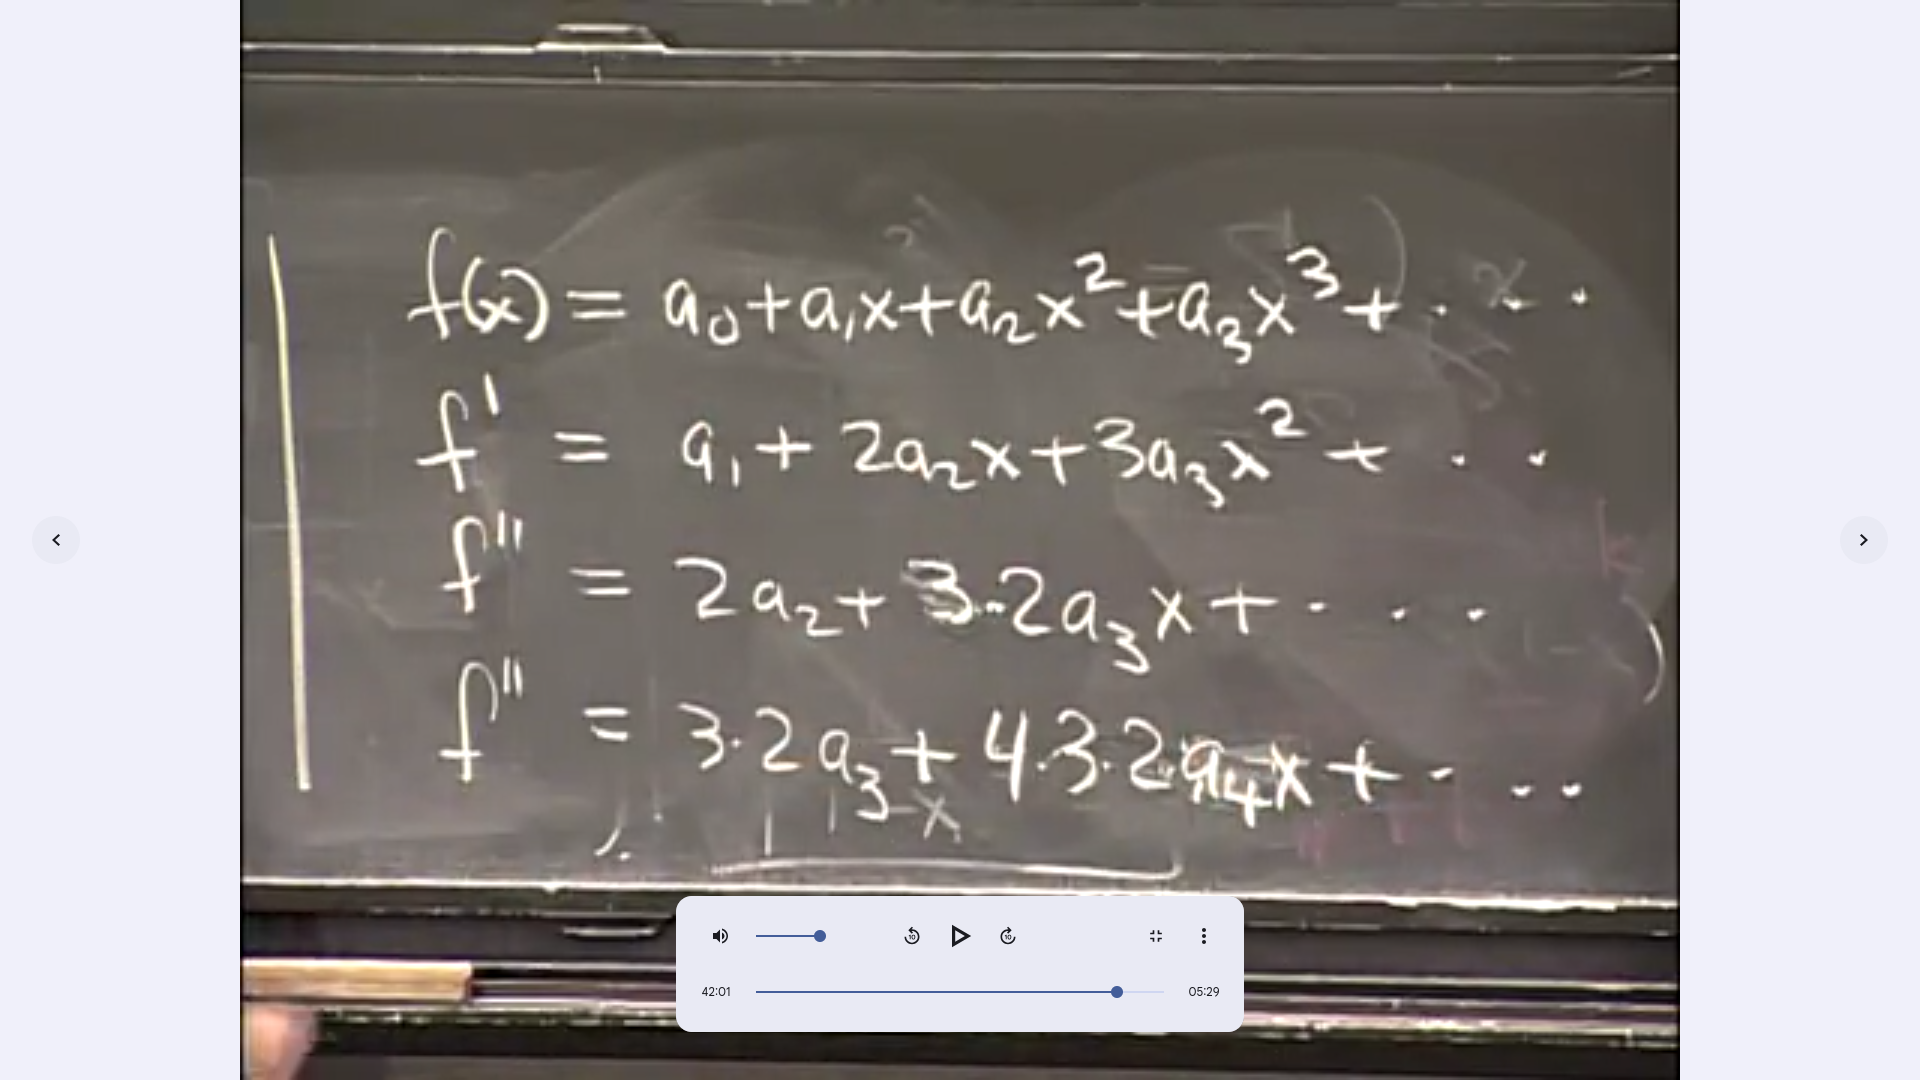 f(x) = a₀ + a₁x + a₂x² + a₃x³ + · · ·
f' = a₁ + 2a₂x + 3a₃x² + · ·
f'' = 2a₂ + 3·2a₃x + · · ·
f'' = 3·2a₃ + 4·3·2a₄x + · · ·
10
10
42:01
05:29